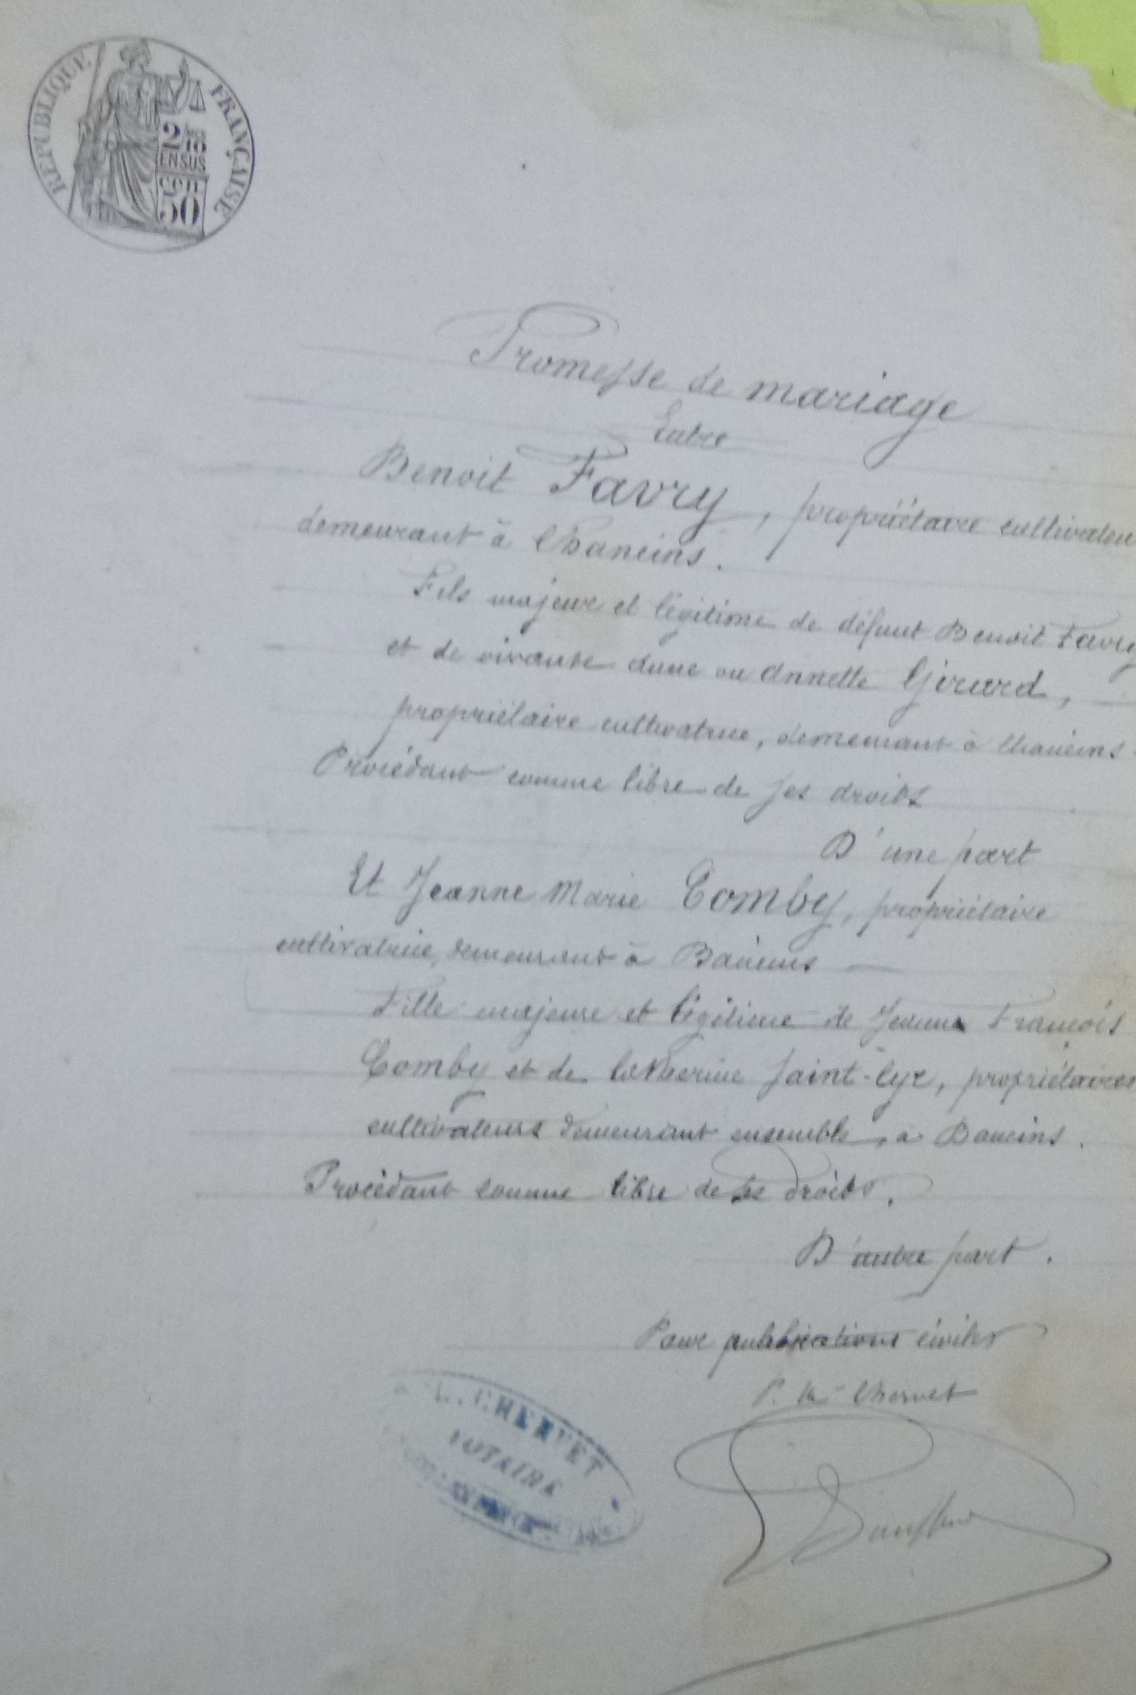 RÉPUBLIQUE FRANÇAISE
2 10es
EN SUS
50
Promesse de mariage
Entre
Benoit Favry, propriétaire cultivateur
demeurant à Chaneins.
Fils majeur et légitime de défunt Benoit Favry
et de vivante dame ou Annette Girard,
propriétaire cultivatrice, demeurant à Chaneins
Procédant comme libre de ses droits
D'une part
Et Jeanne Marie Comby, propriétaire
cultivatrice, demeurant à Baneins
Fille majeure et légitime de Jeanne François
Comby et de Catherine Saint-Cyr, propriétaires
cultivateurs demeurant ensemble, à Baneins.
Procédant comme libre de ses droits.
D'autre part.
Pour publications civiles
P. Me Chervet
CHERVET
NOTAIRE